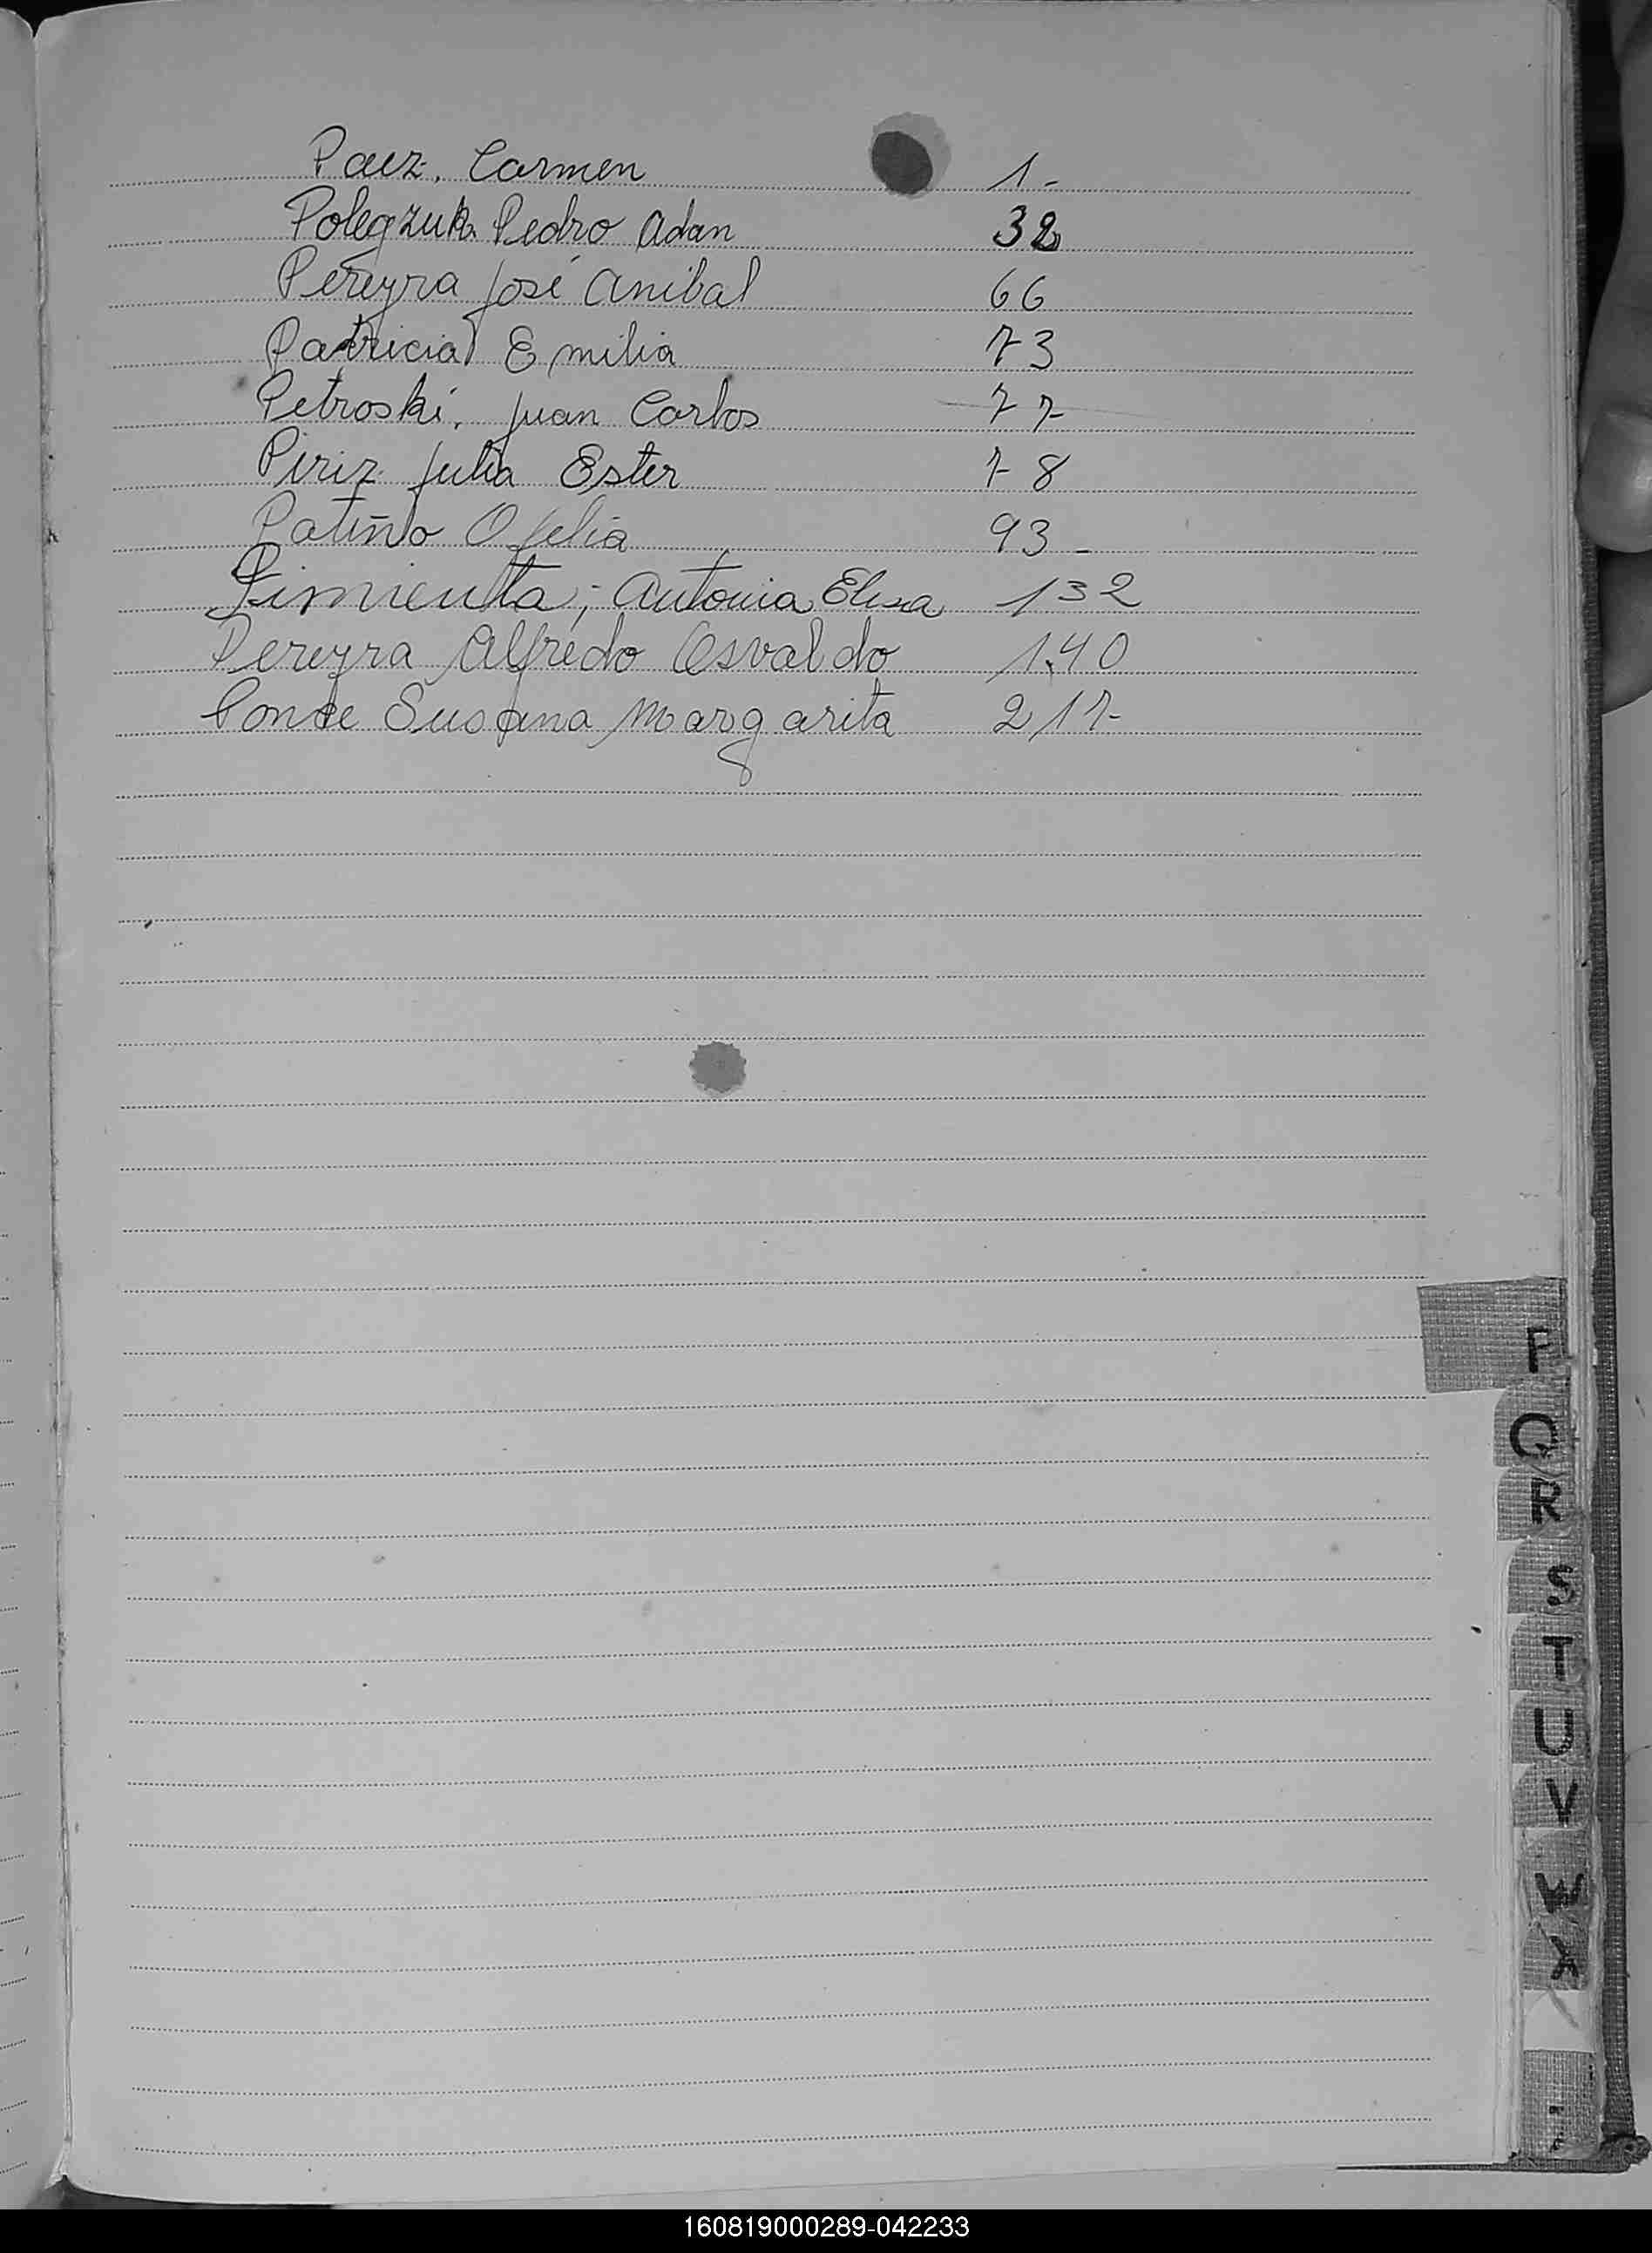 Paez. Carmen 1-
Polegzuk Pedro Adan 32
Pereyra José Anibal 66
Patricia Emilia 73
Petroski, Juan Carlos 77
Piriz Julia Ester 78
Patiño Ofelia 93-
Pimienta, Antonia Elisa 132
Pereyra Alfredo Osvaldo 140
Ponce Susana Margarita 217
P
Q
R
S
T
U
V
W
X
160819000289-042233